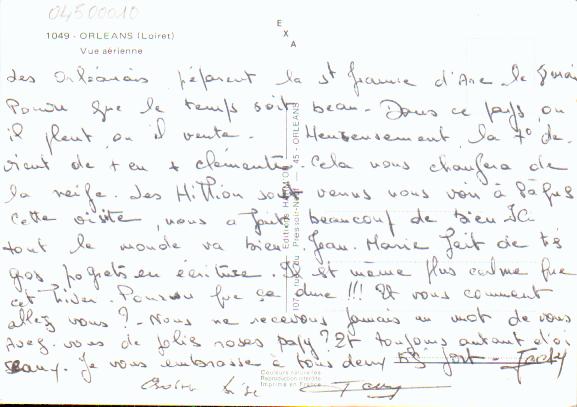 04500010
1049 - ORLEANS (Loiret)
Vue aérienne
EXA
Les Orléanais péparent la St Jeanne d'Arc le 8 mai
Pourvu que le temps soit beau. Dans ce pays, ou
il pleut, ou il vente. Heureusement, la T° de-
vient de + en + clémente. Cela nous changera de
la neige. Les Hillion sont venus nous voir à Pâques
cette visite, nous a fait beaucoup de bien. Ici
tout le monde va bien. Jean-Marie fait de très
gros progrès en écriture. Il est même plus calme que
cet hiver. Pourvu que ça dure !!! Et vous comment
allez vous ? Nous ne recevons jamais un mot de vous
Avez-vous de jolies roses papy ? Et toujours autant d'oi
seaux. Je vous embrasse à tous deux très fort -
Editions
45 - ORLEANS
Couleurs naturelles
Reproduction interdite
Imprimé en France